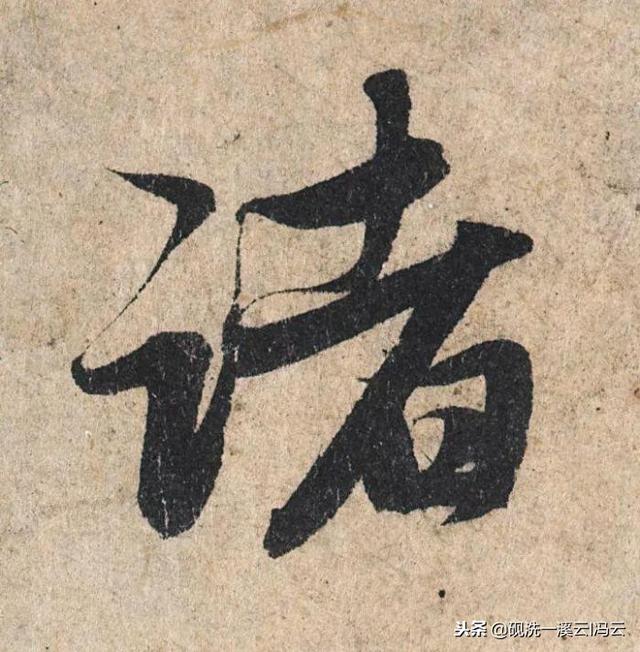 诸
头条 @砚洗一溪云l冯云